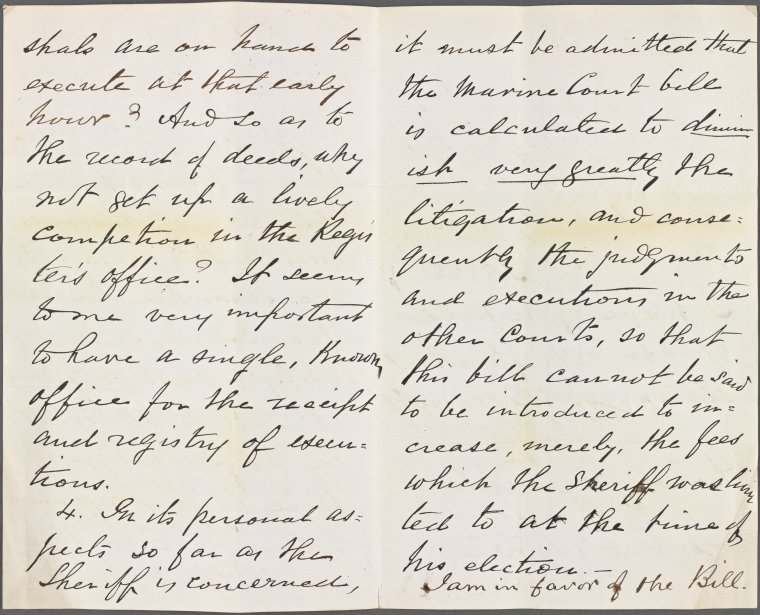 shals are on hand to
execute at that early
hour? And so as to
the record of deeds, why
not get up a lively
competion in the Regis
ter's office? It seems
to me very important
to have a single, known
office for the receipt
and registry of execu=
tions.
4. In its personal as=
pects so far as the
Sheriff is concerned,
it must be admitted that
the Marine Court bill
is calculated to dimin
ish very greatly the
litigation, and conse=
quently the judgments
and executions in the
other Courts, so that
this bill cannot be said
to be introduced to in=
crease, merely, the fees
which the Sheriff was limi
ted to at the time of
his election.—
I am in favor of the Bill.